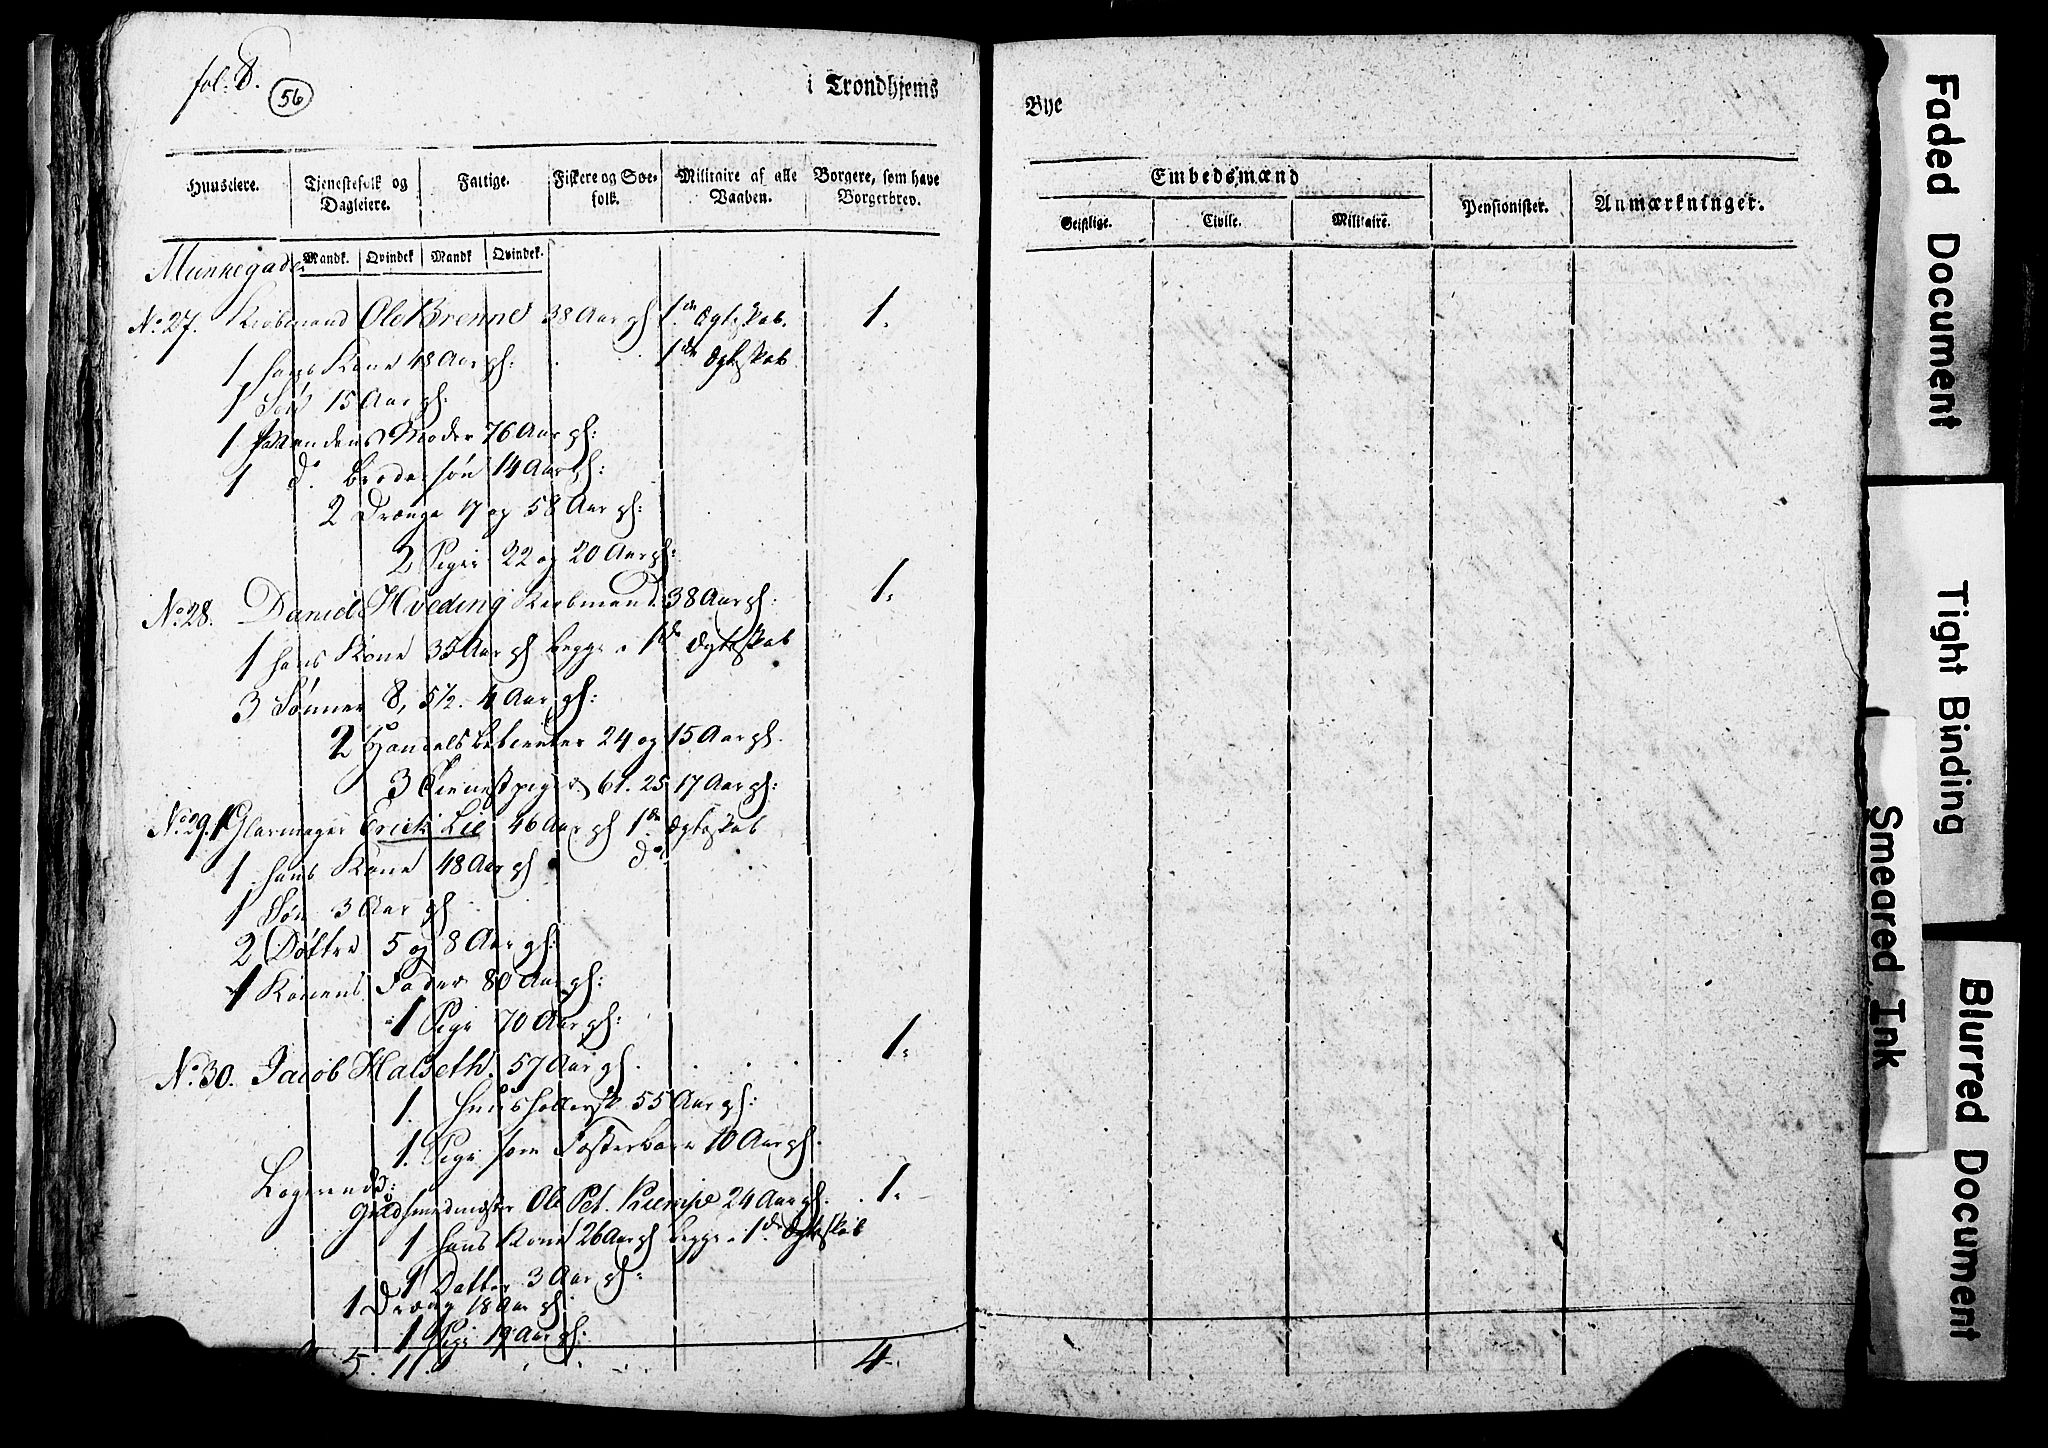 fol. 8.
56
i Trondhjems
Bye
Huuseiere.
Tjenestefolk og Dagleiere.
Fattige.
Fiskere og Søefolk.
Militaire af alle Vaaben.
Borgere, som have Borgerbrev.
Mandk. Qvindek Mandk Qvindek.
Embedsmænd
Geistlige.
Civile.
Militaire.
Pensionister.
Anmærkninger.
Munkegaden
No. 27. Kiøbmand Ole Brenne 38 Aar gl 1de Ægteskab. 1.
1 hans Kone 48 Aar gl: 1de Ægteskab
1 Søn 15 Aar gl:
1 Mandens Moder 76 Aar gl:
1 do. Brodersøn 14 Aar gl:
2 Drenge 17 og 58 Aar gl:
2 Piger 22 og 20 Aar gl:
No. 28. Daniel Hveding Kiøbmand 38 Aar gl: 1.
1 hans Kone 35 Aar gl begge i 1de Ægteskab
3 Sønner 8, 5½. 4 Aar gl:
2 Handelsbetienter 24 og 15 Aar gl.
3 Tienestpiger 61. 25 17 Aar gl:
No. 29. 1 Glarmager Erick Lie 46 Aar gl 1de Ægteskab
1 hans Kone 48 Aar gl do
1 Søn 3 Aar gl
2 Døttre 5 og 8 Aar gl:
1 Konens Fader 80 Aar gl:
1 Pige 70 Aar gl:
No. 30. Jacob Halseth. 57 Aar gl. 1.
1. Huusholdersk 55 Aar gl:
1. Pige som Fosterbarn 10 Aar gl.
Logerende:
Guldsmedmester Ole Pet. Kiempe 24 Aar gl. 1.
1 hans Kone 26 Aar gl begge i 1de Ægteskab
1 Datter 3 Aar gl:
1 Dreng 18 Aar gl
1 Pige 19 Aar gl:
5. 11. 4.
Faded Document
Tight Binding
Smeared Ink
Blurred Document